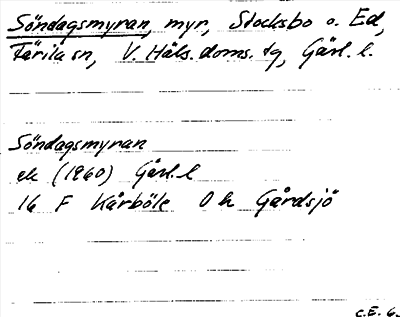 Söndagsmyran, myr, Stocksbo o. Ed,
Färila sn, V. Häls. doms. tg, Gävl. l.
Söndagsmyran
ek (1960) Gävl. l
16 F Kårböle 0 h Gårdsjö
C.E. 63